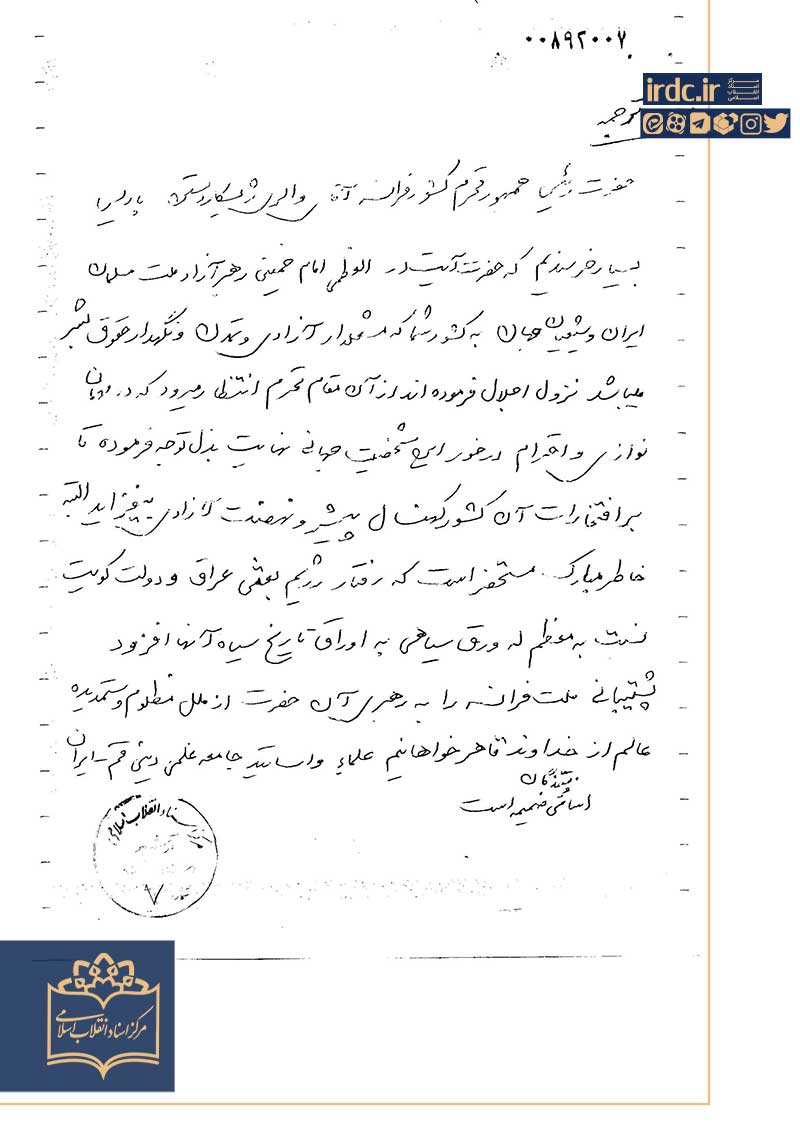 ۰۰۸۹۲۰۰۷
irdc.ir
مرکز اسناد انقلاب اسلامی
ترجمه
حضرت رئیس جمهور محترم کشور فرانسه آقای والری ژیسکاردستن پاریس
بسیار خرسندیم که حضرت آیت الله العظمی امام خمینی رهبر آزاد ملت مسلمان
ایران و شیعیان جهان به کشور شما که مشعلدار آزادی و تمدن و نگهدار حقوق بشر
میباشد نزول اجلال فرموده اند از آن مقام محترم انتظار میرود که در مهمان
نوازی و احترام درخور این شخصیت جهانی نهایت بذل توجه فرموده تا
بر افتخارات آن کشور کهنسال پیشرو نهضت آزادی به فزاید البته
خاطر مبارک مستحضر است که رفتار رژیم بعثی عراق و دولت کویت
نسبت به معظم له ورق سیاهی به اوراق تاریخ سیاه آنها افزود
پشتیبانی ملت فرانسه را به رهبری آن حضرت از ملل مظلوم و ستمدیده
عالم از خداوند قاهر خواهانیم علماء و اساتید جامعه علمی دینی قم - ایران
اسامی نویسندگان ضمیمه است
مرکز اسناد انقلاب اسلامی
۷
مرکز اسناد انقلاب اسلامی